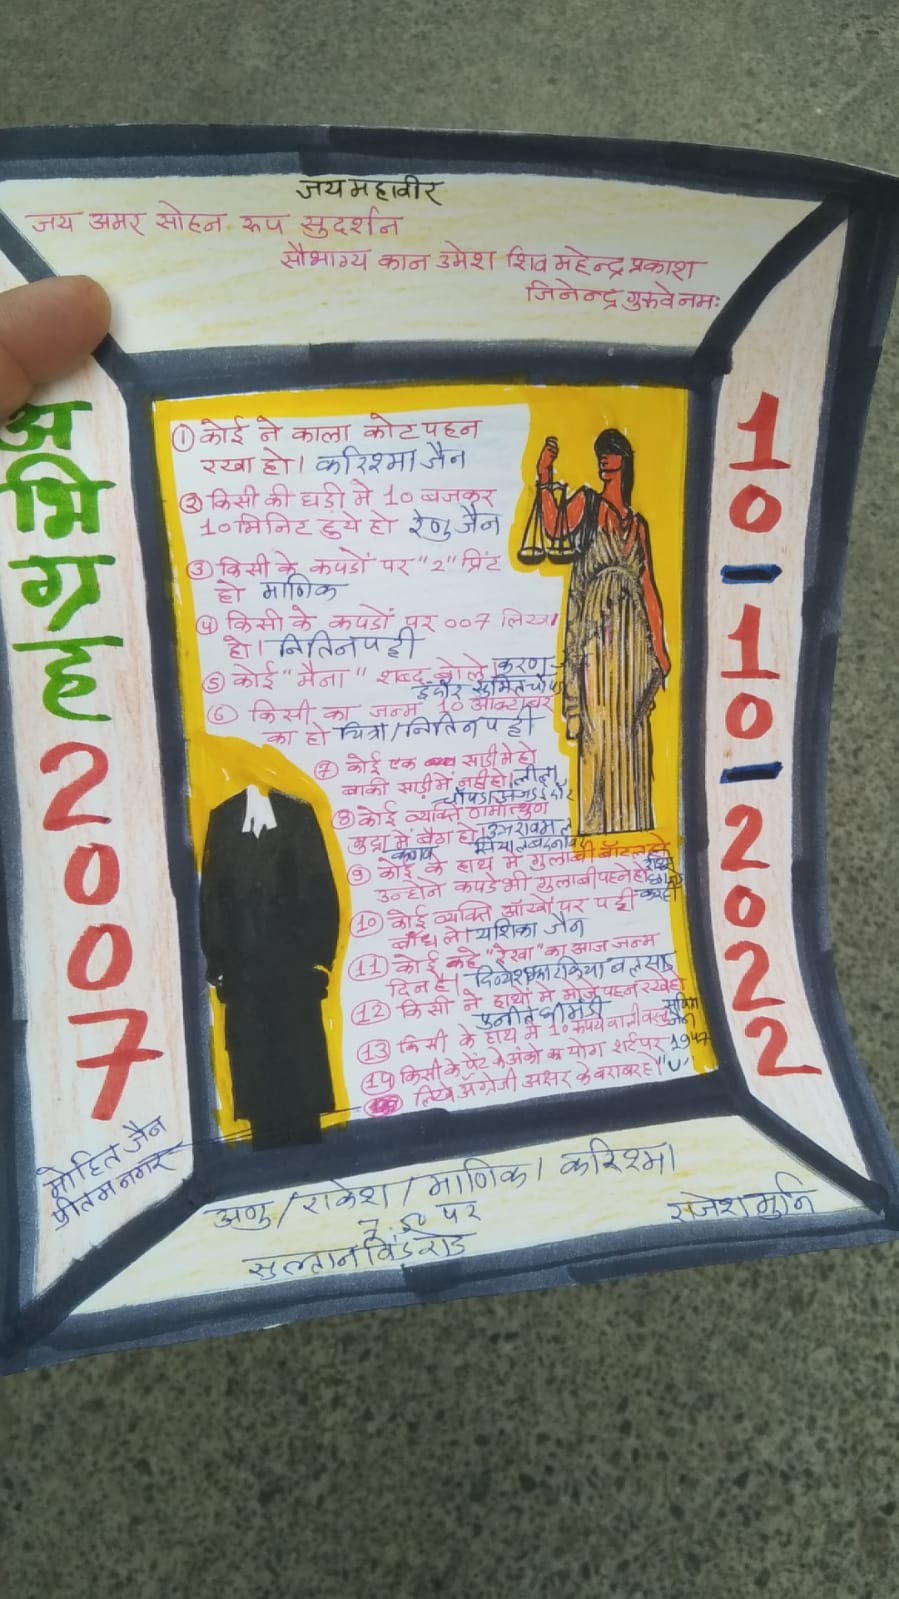 जय महावीर
जय अमर सोहन रूप सुदर्शन
सौभाग्य कान उमेश शिव महेन्द्र प्रकाश
जिनेन्द्र गुरुवे नमः
अभिग्रह 2007
10-10-2022
① कोई ने काला कोट पहन
रखा हो। करिश्मा जैन
② किसी की घड़ी मे 10 बजकर
10 मिनिट हुये हो रेणु जैन
③ किसी के कपडों पर "2" प्रिंट
हो माणिक
④ किसी के कपडों पर 007 लिखा
हो। नितिन पट्टी
⑤ कोई "मैना" शब्द बोले करण
इंदौर सुमित
⑥ किसी का जन्म 10 ऑक्टोबर
का हो चित्रा/नितिन पट्टी
⑦ कोई एक साड़ी मे हो
बाकी साड़ी में नही हो। लीला
चोपडा
⑧ कोई व्यक्ति
मुद्रा में बैठा हो। उमरावमल
⑨ कोई के हाथ मे गुलाबी बॉटल हो
उन्होने कपडे भी गुलाबी पहने हो
⑩ कोई व्यक्ति ऑखों पर पट्टी
बाँध ले। यशिका जैन
⑪ कोई कहे "रेखा" का आज जन्म
दिन है।
⑫ किसी ने हाथों मे मोजे पहन रखे हो
पुनीत
⑬ किसी के हाथ मे 10 रूपये वाली वस्तु
जैन
⑭ किसी के पेंट के अंको का योग शर्ट पर 1947
लिखे अँग्रेजी अक्षर के बराबर हो। "U"
मोहित जैन
प्रीतम नगर
अनु / राकेश / माणिक / करिश्मा
7.50 पर
सुल्तानविंड रोड
राजेश मुनि